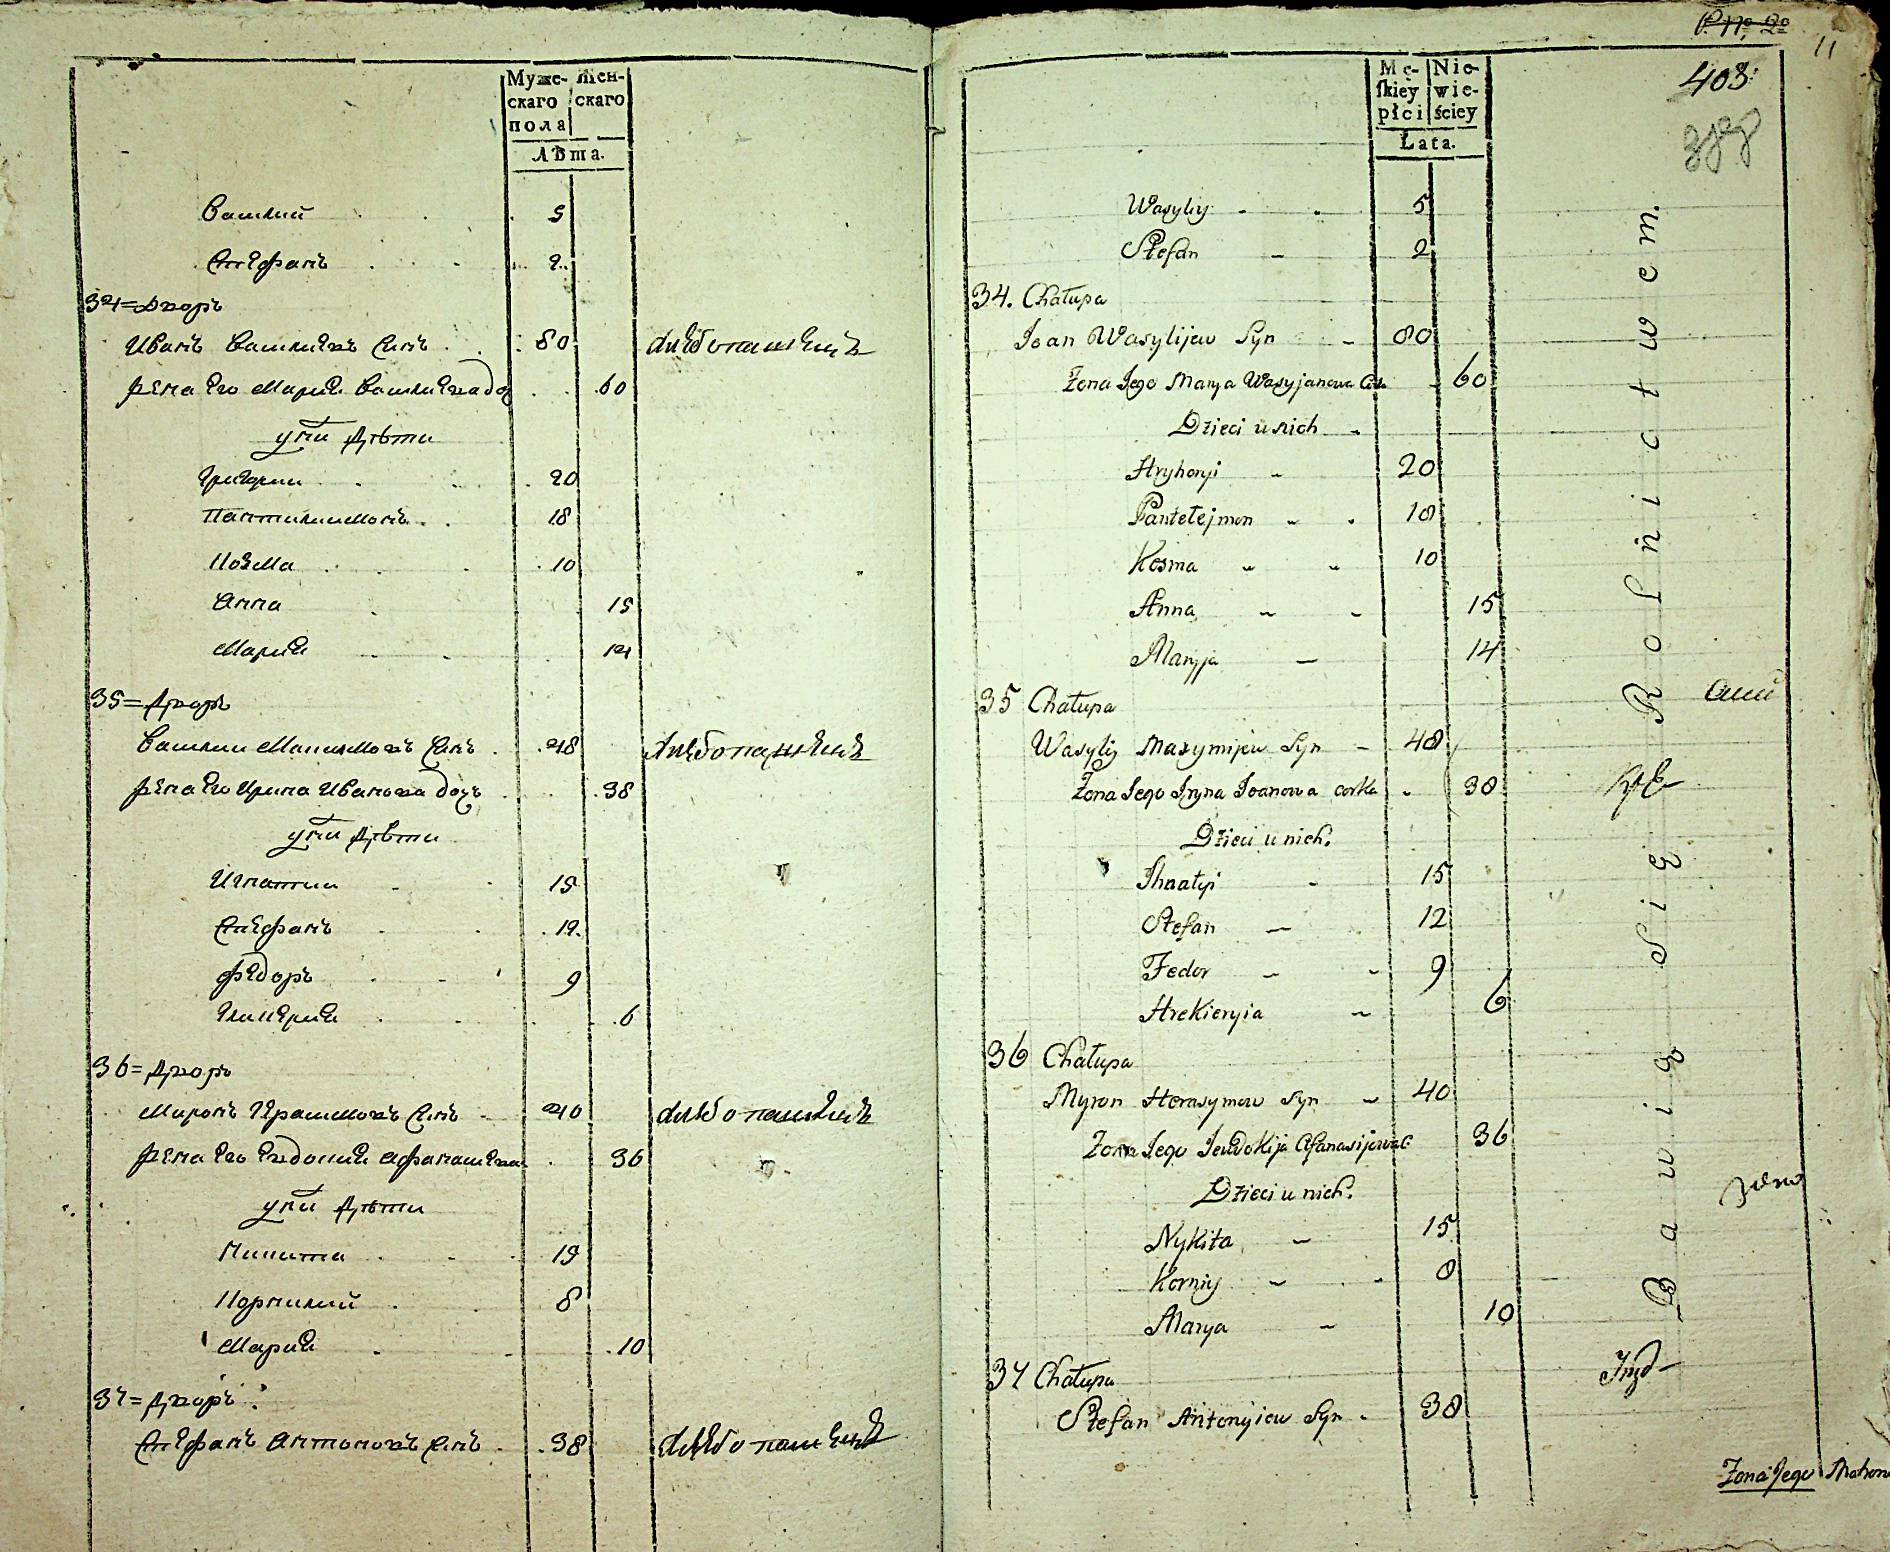 Муже-скаго пола
Жен-скаго
Лѣта.
Василий 5
Стефанъ 2
34 = Дворъ
Иванъ Васильевъ Синъ 80 хлѣбопашецъ
жена его Мария Васильева доч 60
у ни дѣти
Григории 20
Пантилимонъ 18
Козма 10
Анна 15
Мария 14
35 = Дворъ
Василии Максимовъ Синъ 48 хлѣбопашецъ
жена его Ирина Иванова доч 38
у ни дѣти
Игнатии 15
Стефанъ 12
Федоръ 9
Гликерия 6
36 = Дворъ
Миронъ Герасимовъ Синъ 40 хлѣбопашецъ
жена его Евдокия Афанасиева 36
у ни дѣти
Никита 15
Корнилий 8
Мария 10
37 = Дворъ
Стефанъ Антоновъ Синъ 38 хлѣбопашецъ
P. No. 2o
11
408
Mę-skiey płci
Nie-wie-ściey
Lata.
Wasyliy 5
Stefan 2
34. Chałupa
Joan Wasylijew Syn 80
Żona Jego Marya Wasyjanowa 60
Dzieci u nich
Hryhoryi 20
Pantelejmon 18
Kosma 10
Anna 15
Maryja 14
35 Chałupa
Wasyliy Maxymijew Syn 48
Żona Jego Jryna Joanowa corka 38
Dzieci u nich.
Jhnatyi 15
Stefan 12
Fedor 9
Hrekieryia 6
36 Chałupa
Myron Herasymow Syn 40
Żona Jego Jewdokija Afanasijowa C. 36
Dzieci u nich.
Nykita 15
Korniy 8
Marya 10
37 Chałupa
Stefan Antonyiew Syn. 38
Bawią Się Rolnictwem.
Żona Jego Matrona